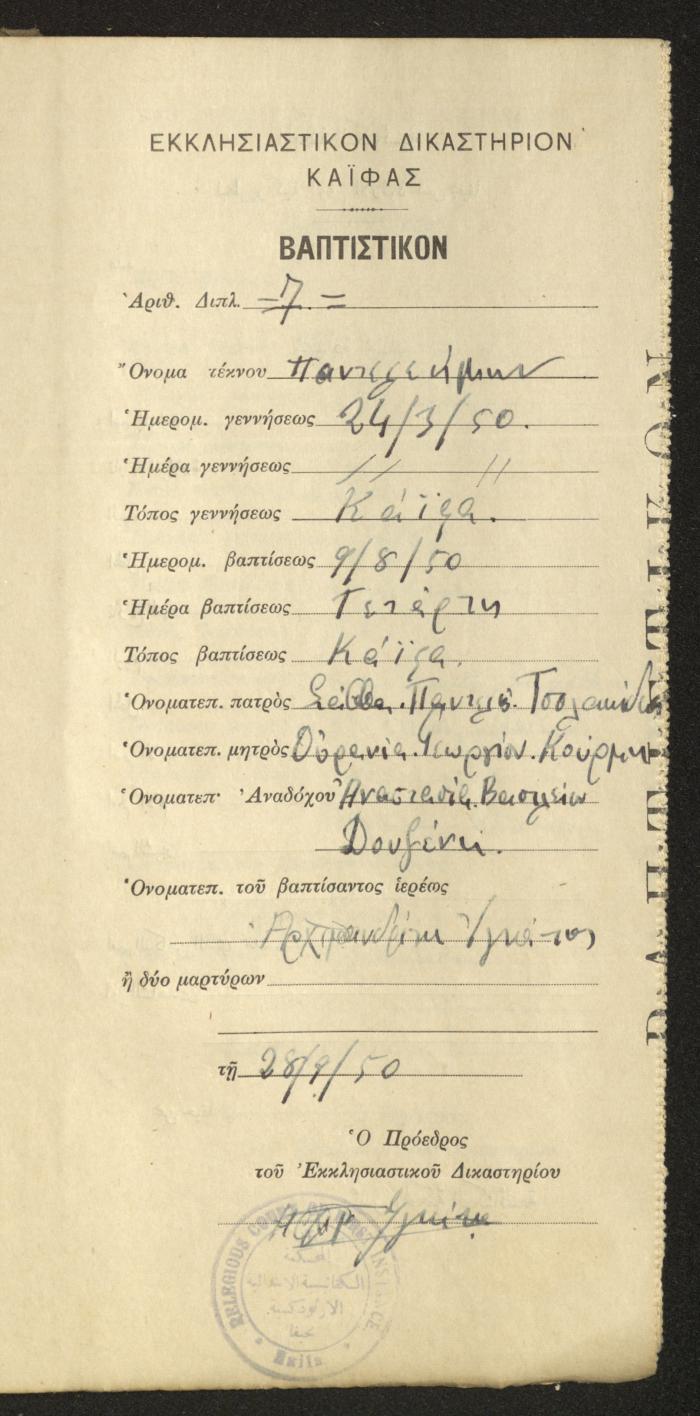 ΕΚΚΛΗΣΙΑΣΤΙΚΟΝ ΔΙΚΑΣΤΗΡΙΟΝ
ΚΑΪΦΑΣ
ΒΑΠΤΙΣΤΙΚΟΝ
Ἀριθ. Διπλ. =7.=
Ὄνομα τέκνου Παντελεήμων
Ἡμερομ. γεννήσεως 24/3/50.
Ἡμέρα γεννήσεως // //
Τόπος γεννήσεως Κάϊφα.
Ἡμερομ. βαπτίσεως 9/8/50
Ἡμέρα βαπτίσεως Τετάρτη
Τόπος βαπτίσεως Κάϊφα.
Ὀνοματεπ. πατρὸς Σάββα Παντελῆ
Ὀνοματεπ. μητρὸς Οὐρανία Γεωργίου
Ὀνοματεπ· Ἀναδόχου Ἀναστασία Βασιλείου
Δουξένη.
Ὀνοματεπ. τοῦ βαπτίσαντος ἱερέως
Ἀρχιμανδρίτης Ἰγνάτιος
ἢ δύο μαρτύρων
τῇ 28/9/50
Ὁ Πρόεδρος
τοῦ Ἐκκλησιαστικοῦ Δικαστηρίου
RELEGIOUS
Haifa
حيفا